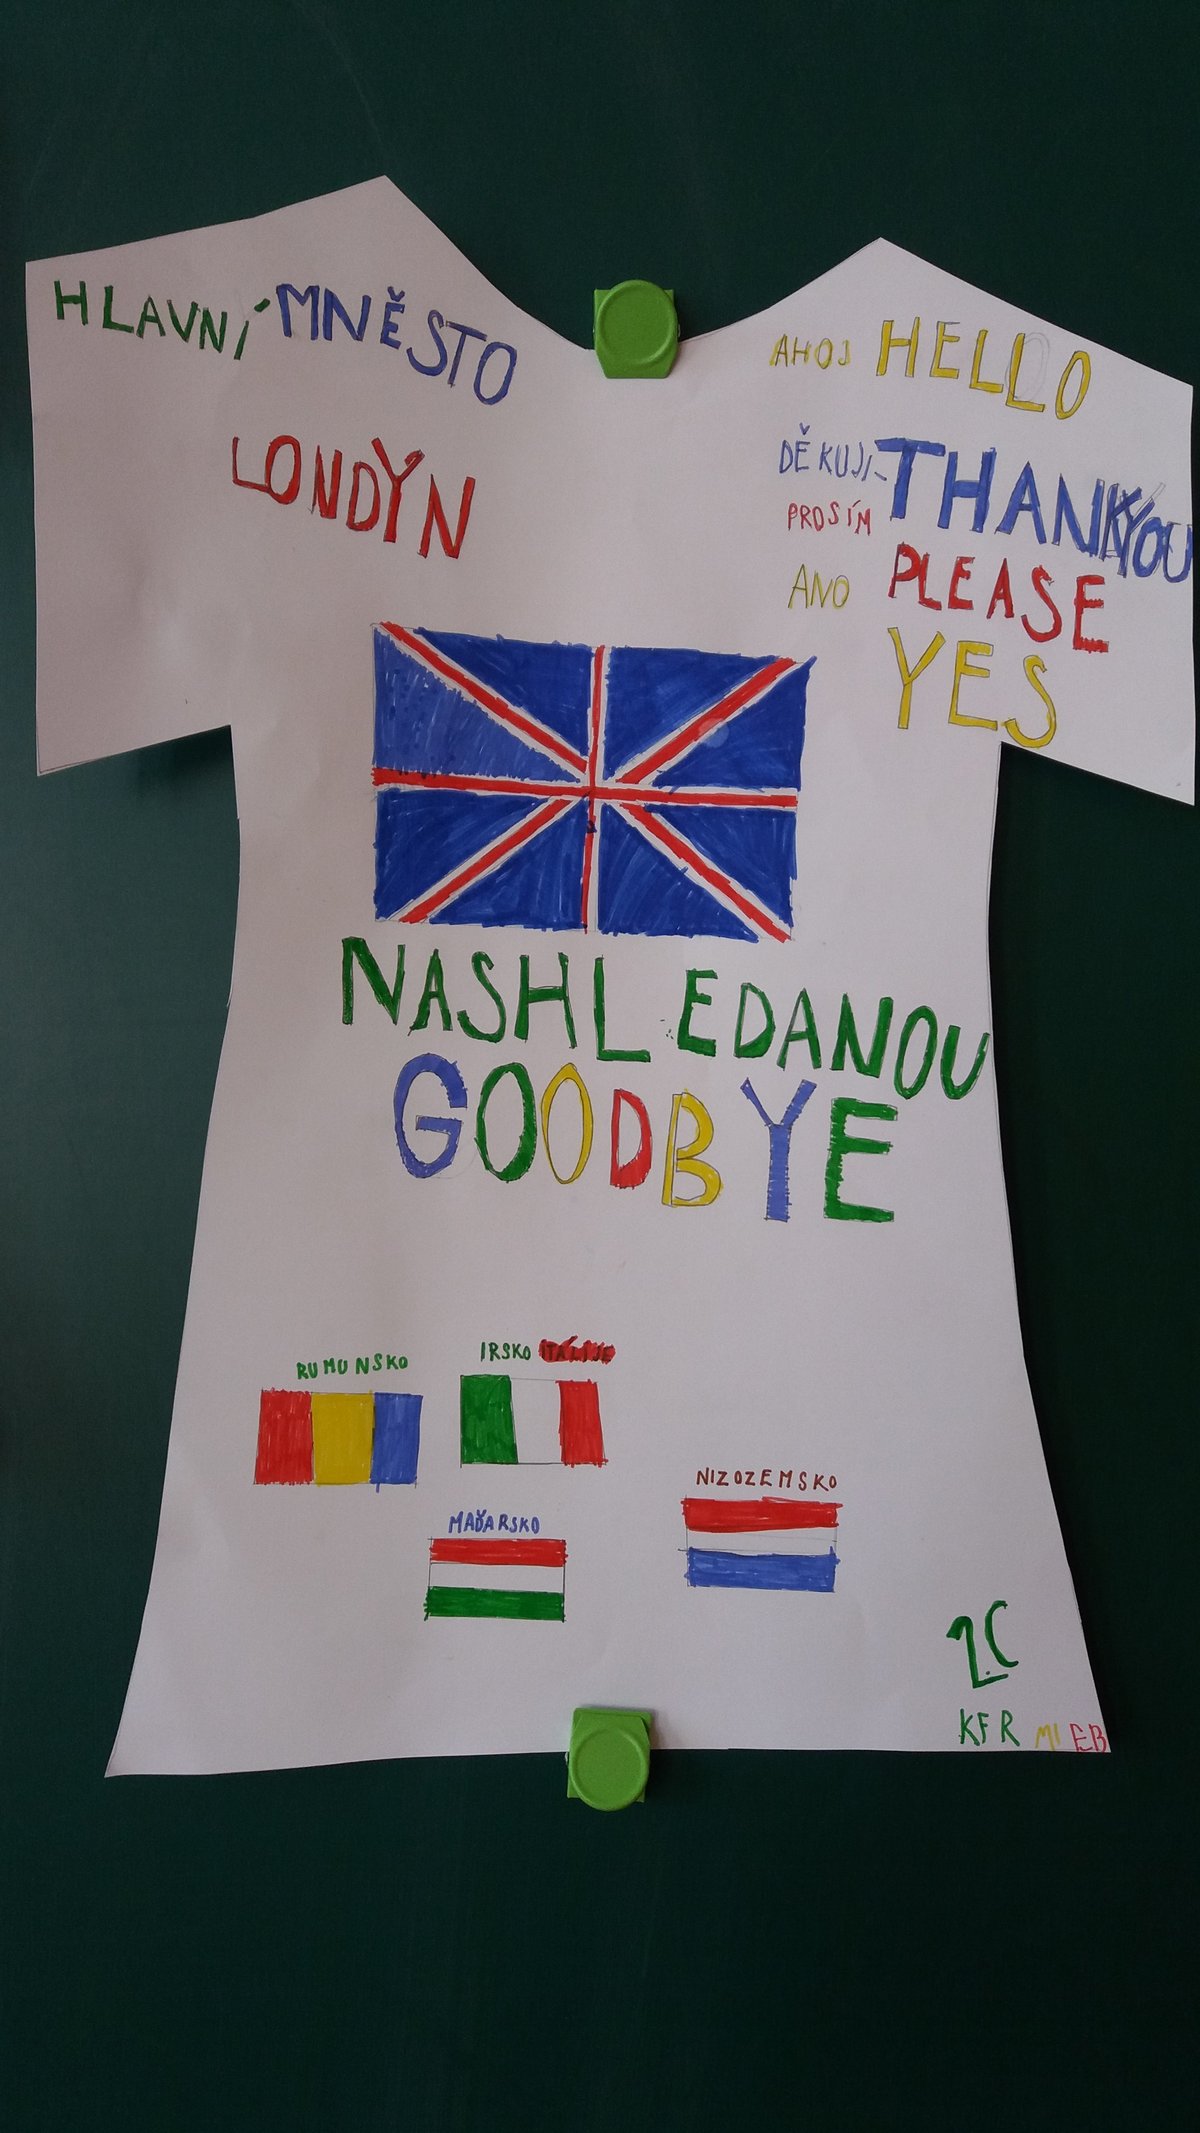 HLAVNÍ MNĚSTO
LONDÝN
AHOJ HELLO
DĚKUJI THANKYOU
PROSÍM PLEASE
ANO YES
NASHLEDANOU
GOODBYE
RUMUNSKO
IRSKO ITÁLIJE
MAĎARSKO
NIZOZEMSKO
2.C
KFR MI EB